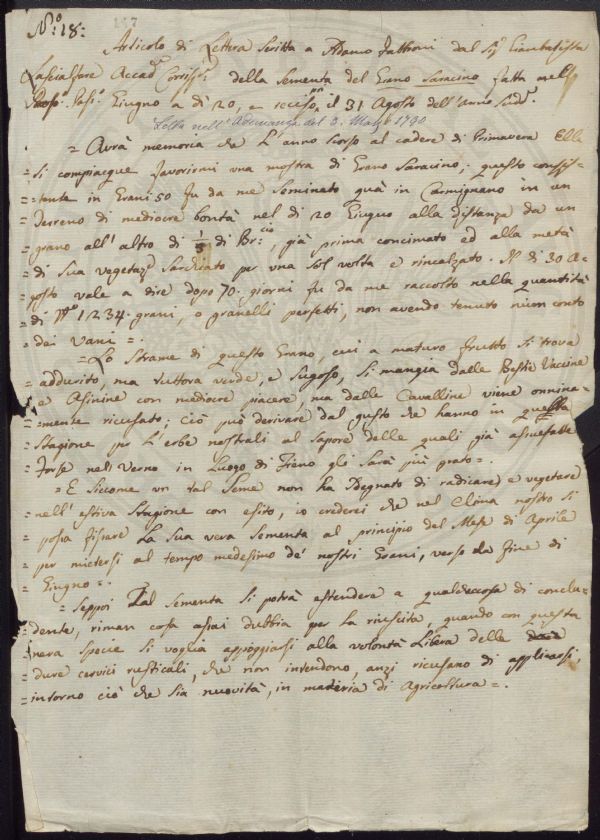 N.º 18:
157
Articolo di Lettera Scritta a Adamo Fabbroni dal Sig.r Giambatista
Lascialfare Accad.o Corrisp.e della Sementa del Grano Saracino fatta nell
Giugno a dì 20, e reciso il 31 Agosto dell'anno Sudd.o
Letta nell'Adunanza del 3. Marzo 1790
= Avrà memoria che l'anno scorso al cadere di Primavera Elle
= si compiacque favorirmi una mostra di Grano Saracino; questo consis-
= tente in Grani 50 fu da me Seminato quà in Carmignano in un
= Terreno di mediocre bontà nel dì 20 Giugno alla distanza da un
= grano all'altro di 1/3 di Br:cio, già prima concimato ed alla metà
= di Sua vegetaz.e Sarchiato per una Sol volta e rincalzato. Il dì 30 A-
= gosto vale a dire dopo 70. giorni fu da me raccolto nella quantità
= di N.o 1234. grani, o granelli perfetti, non avendo tenuto niun conto
= dei Vani =.
= Lo Strame di questo Grano, cui a maturo frutto si trova
= addurito, ma tuttora verde, e Sugoso, si mangia dalle Bestie Vaccine
= e Asinine con mediocre piacere, ma dalle Cavalline viene onnina-
= mente ricusato; ciò può derivare dal gusto che hanno in questa
= Stagione per l'erbe nostrali al Sapore delle quali già assuefatte
= Forse nell verno in Luogo di Fieno gli Sarà più grato =.
= E Siccome un tal Seme non ha Sdegnato di radicare, e vegetare
= nell'estiva Stagione con esito, io crederei che nel Clima nostro si
= possa fissare la Sua vera Sementa al principio del Mese di Aprile
= per mietersi al tempo medesimo de' nostri Grani, verso la fine di
= Giugno =.
= Seppoi Tal Sementa si potrà estendere a qualchecosa di conclu-
= dente, riman cosa assai dubbia per la riuscita, quando con questa
= nuova specie si voglia appoggiarsi alla volontà libera delle
= dure cervici rusticali, che non intendono, anzi ricusano di applicarsi,
= intorno ciò che sia nuovità, in materia di Agricoltura =.